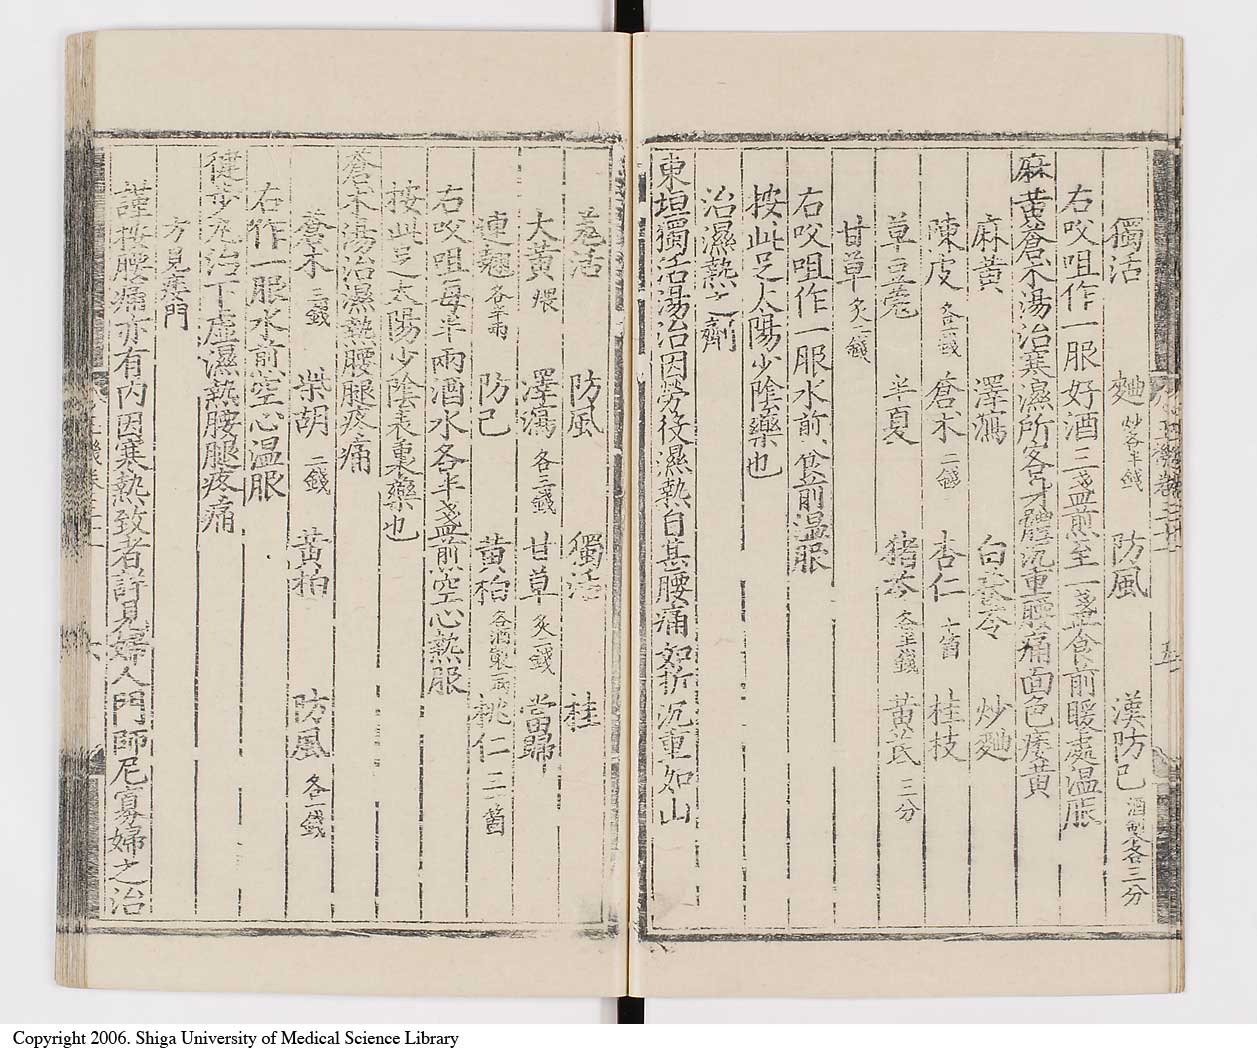 獨活 麯炒各半錢 防風 漢防己酒製各三分
右㕮咀作一服好酒三盞煎至一盞食前暖處温服
麻黄蒼朮湯治寒濕所客身體沉重腰痛面色痿黄
麻黄 澤瀉 白茯苓 炒麯
陳皮各一錢 倉朮二錢 杏仁十箇 桂枝
草豆蔻 半夏 猪苓各半錢 黄芪三分
甘草炙一錢
右㕮咀作一服水煎食前温服
按此足太陽少陰藥也
治濕熱之劑
東垣獨活湯治因勞役濕熱自甚腰痛如折沉重如山
羌活 防風 獨活 桂
大黄煨 澤瀉各三錢 甘草炙二錢 當歸
連翹各半兩 防己 黄栢各酒製一兩 桃仁三十箇
右㕮咀每半兩酒水各半盞煎空心熱服
按此足太陽少陰表裏藥也
蒼朮湯治濕熱腰腿疼痛
蒼朮三錢 柴胡二錢 黄栢 防風各一錢
右作一服水煎空心温服
健步丸治下虚濕熱腰腿疼痛
方見痿門
謹按腰痛亦有内因寒熱致者詳見婦人門師尼寡婦之治
Copyright 2006. Shiga University of Medical Science Library